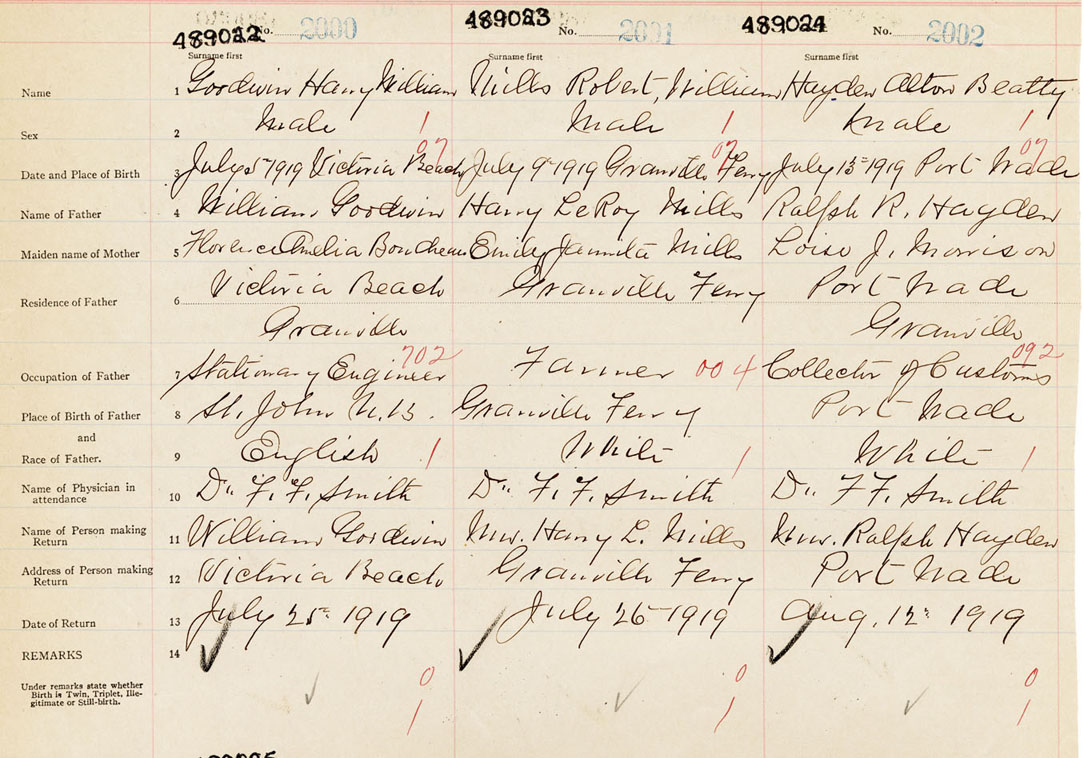 489022 No. 2000 489023 No. 2001 489024 No. 2002
Surname first Surname first Surname first
Name 1 Goodwin Harry William Mills Robert, William Hayden Alton Beatty
Sex 2 Male 1 Male 1 Male 1
07 07 07
Date and Place of Birth 3 July 5th 1919 Victoria Beach July 9th 1919 Granville Ferry July 13th 1919 Port Wade
Name of Father 4 William Goodwin Harry LeRoy Mills Ralph R. Hayden
Maiden name of Mother 5 Florence Amelia Emily Mills Loise J. Morrison
Residence of Father 6 Victoria Beach Granville Ferry Port Wade
Granville Granville
702 092
Occupation of Father 7 Stationary Engineer Farmer 004 Collector of Customs
Place of Birth of Father 8 St. John N.B. Granville Ferry Port Wade
and
Race of Father. 9 English 1 White 1 White 1
Name of Physician in
attendance 10 Dr. F. F. Smith Dr. F. F. Smith Dr. F F. Smith
Name of Person making
Return 11 William Goodwin Mrs. Harry L. Mills Mrs. Ralph Hayden
Address of Person making
Return 12 Victoria Beach Granville Ferry Port Wade
Date of Return 13 July 25th 1919 July 26 1919 Aug. 12th 1919
REMARKS 14
Under remarks state whether
Birth is Twin, Triplet, Ille-
gitimate or Still-birth.
0 0 0
1 1 1